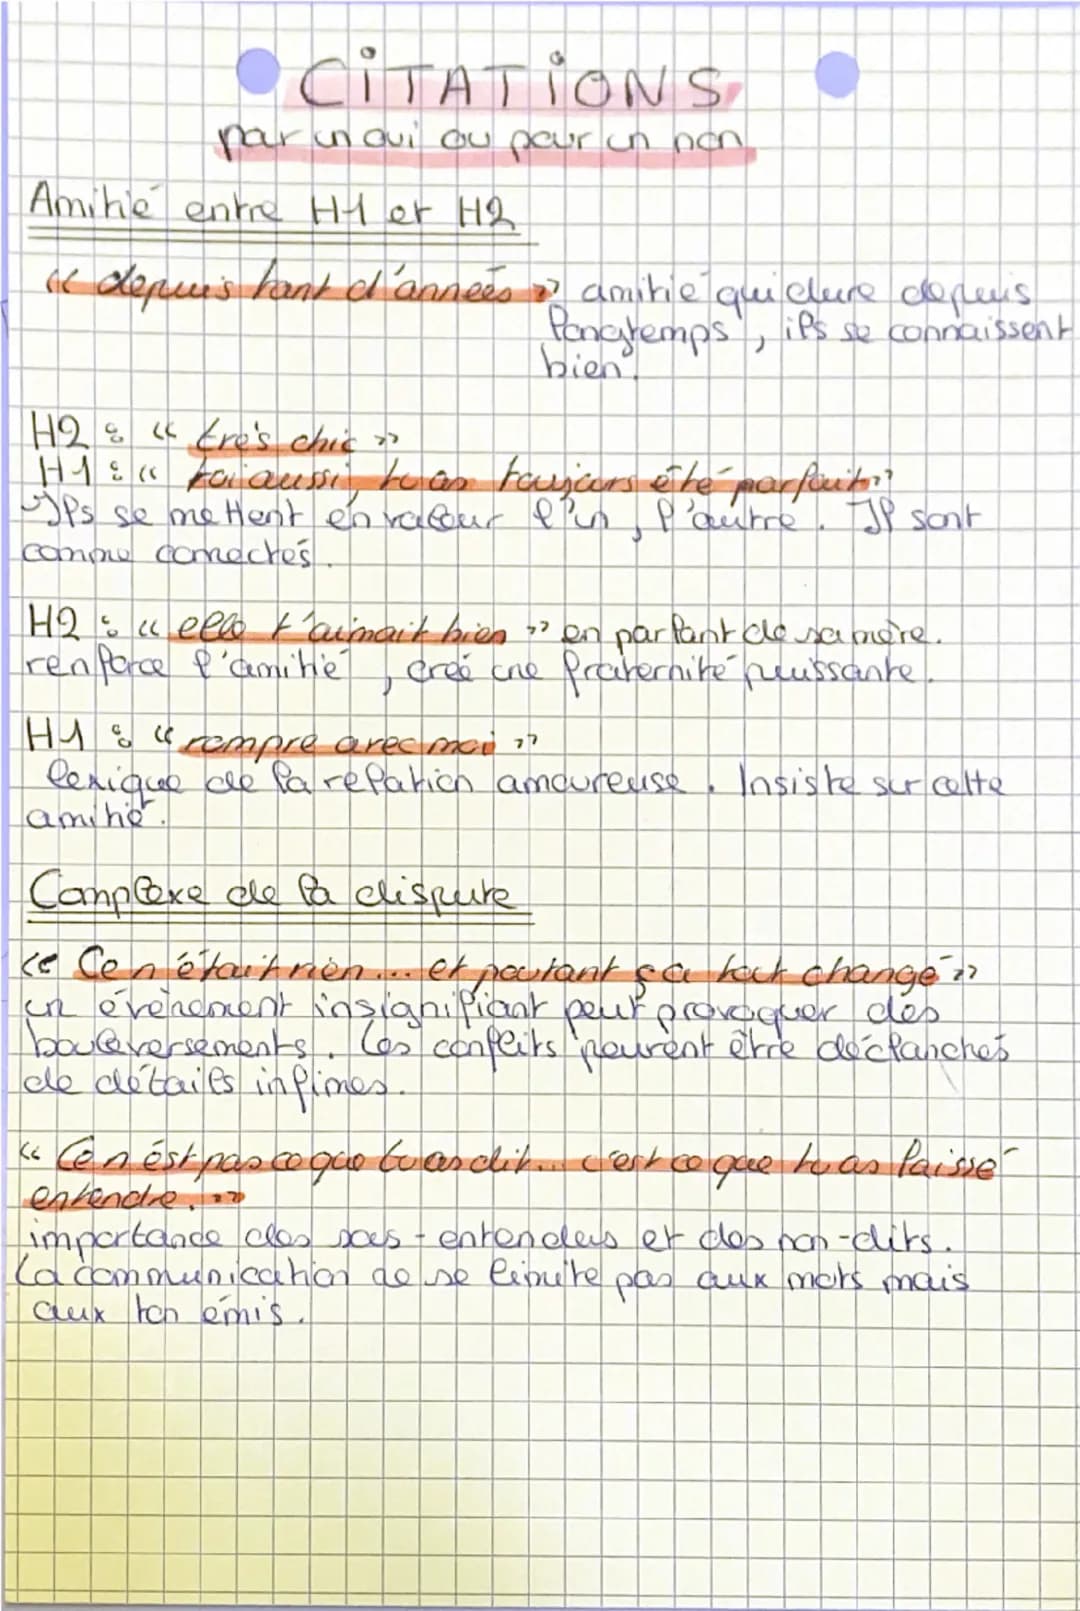 CiTATiONS
par un oui ou pour un non
Amitié entre H1 et H2
« depuis tant d'années » amitié qui dure depuis
longtemps, ils se connaissent
bien.
H2 : « très chic »
H1 : « toi aussi, tu as toujours été parfait »
Ils se mettent en valeur l'un, l'autre. Il sont
comme connectés.
H2 : « elle t'aimait bien » en parlant de sa mère.
renforce l'amitié, creé une fraternité puissante.
H1 : « rompre avec moi »
lexique de la relation amoureuse. Insiste sur cette
amitié.
Complexe de la dispute
« Ce n'était rien... et pourtant ça tout changé »
un évènement insignifiant peut provoquer des
bouleversements. Les conflits peuvent être déclanchés
de détails infimes.
« Ce n'est pas ce que tu as dit... c'est ce que tu as laissé
entendre. »
importance des sous-entendus et des non-dits.
La communication ne se limite pas aux mots mais
aux ton émis.